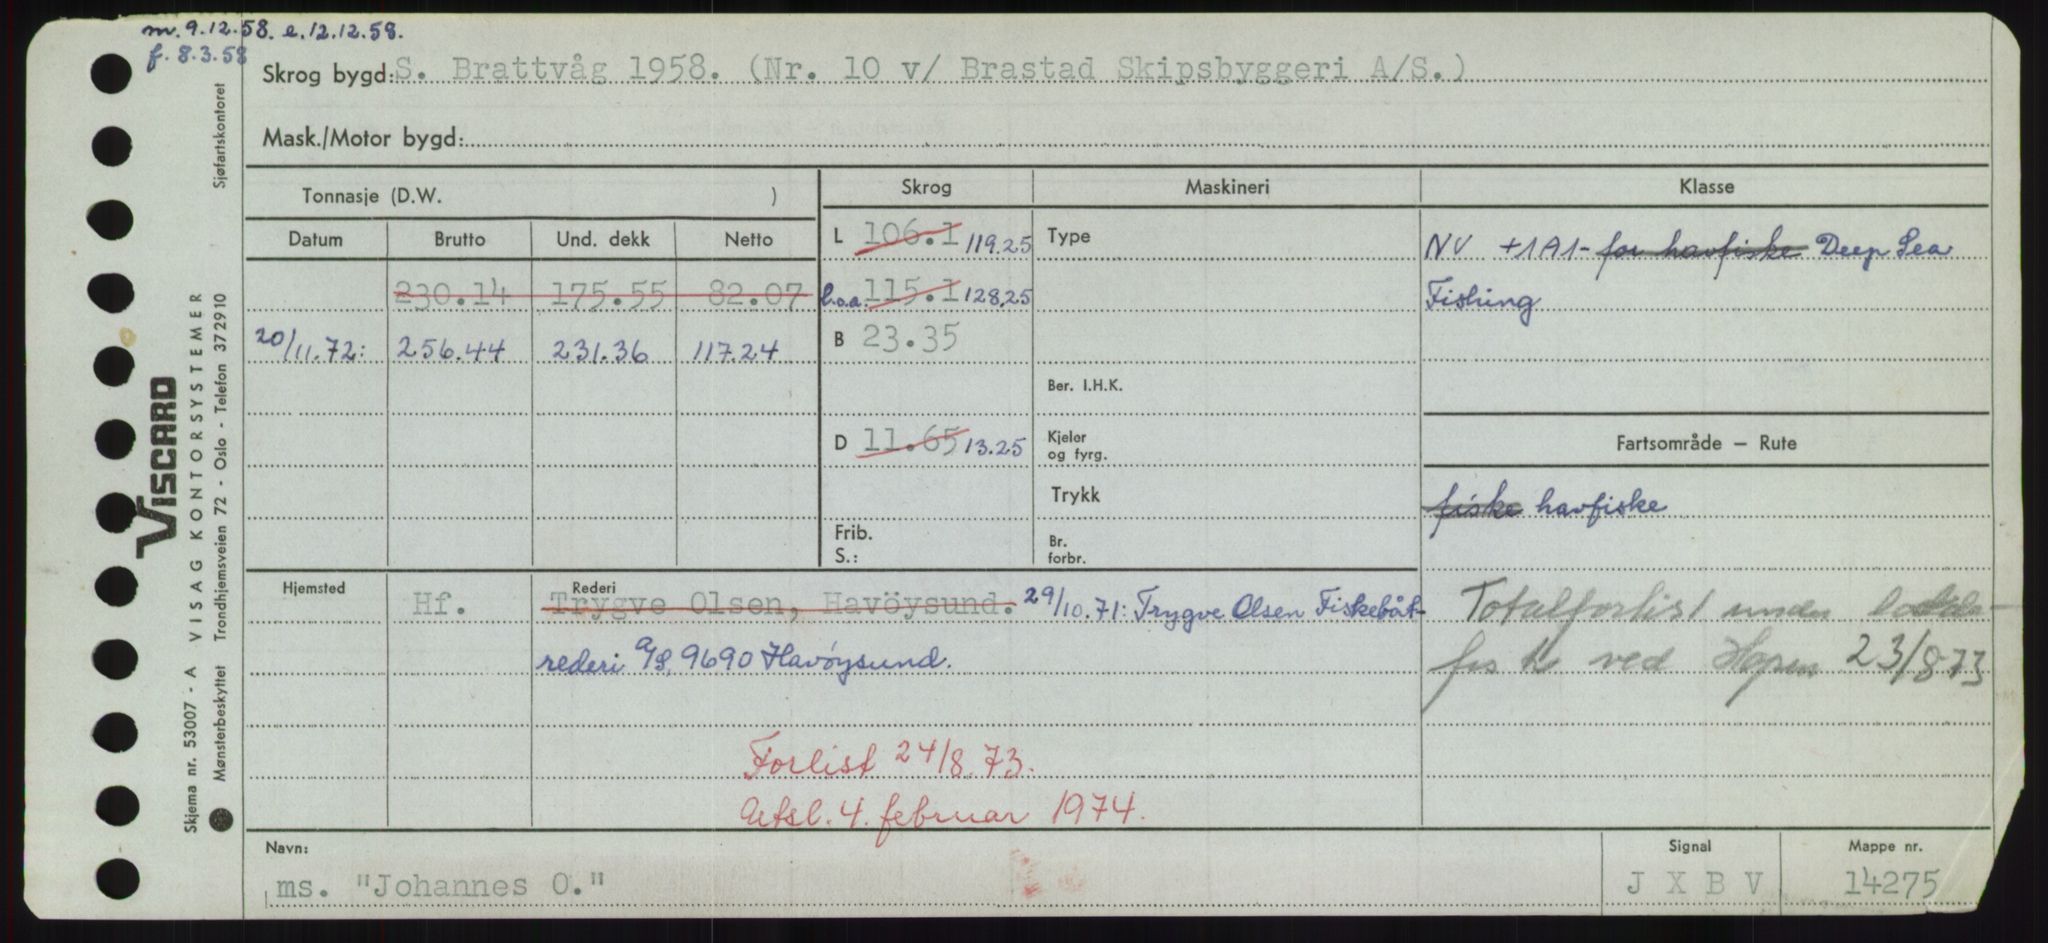 m. 9.12.58. e. 12.12.58.
f. 8.3.58
Skrog bygd: S. Brattvåg 1958. (Nr. 10 v/ Brastad Skipsbyggeri A/S.)
Mask./Motor bygd:
Tonnasje (D.W. )
Skrog Maskineri Klasse
Datum Brutto Und. dekk Netto
L 106.1 119.25 Type
NV +1A1- for havfiske Deep Sea
230.14 175.55 82.07
l.o.a. 115.1 128.25
Fishing
20/11.72: 256.44 231.36 117.24
B 23.35
Ber. I.H.K.
D 11.65 13.25
Kjeler
og fyrg.
Fartsområde – Rute
Trykk
fiske havfiske
Frib.
S.:
Br.
forbr.
Hjemsted Rederi
Hf. Trygve Olsen, Havöysund. 29/10.71: Trygve Olsen Fiskebåt-
rederi A/S, 9690 Havöysund.
Totalforlist under lodde-
fiske ved Hopen 23/8-73
Forlist 24/8.73.
Utsl. 4. februar 1974.
Navn: Signal Mappe nr.
ms. "Johannes O." J X B V 14275
Skjema nr. 53007 - A VISAG KONTORSYSTEMER
Mønsterbeskyttet Trondhjemsveien 72 - Oslo - Telefon 372910
Sjøfartskontoret
VISCARD